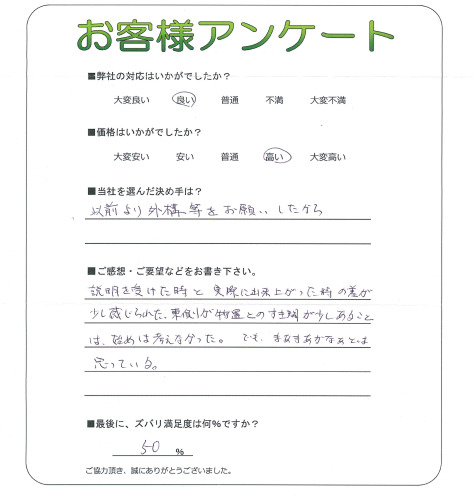 お客様アンケート
■弊社の対応はいかがでしたか?
大変良い 良い 普通 不満 大変不満
■価格はいかがでしたか?
大変安い 安い 普通 高い 大変高い
■当社を選んだ決め手は?
以前より外構等をお願いしたから
■ご感想・ご要望などをお書き下さい。
説明を受けた時と実際に出来上がった時の差が
少し感じられた、東側が物置とのすき間が少しあること
は、始めは考えなかった。でも、まあまあかなぁとは
思っている。
■最後に、ズバリ満足度は何%ですか?
50 %
ご協力頂き、誠にありがとうございました。